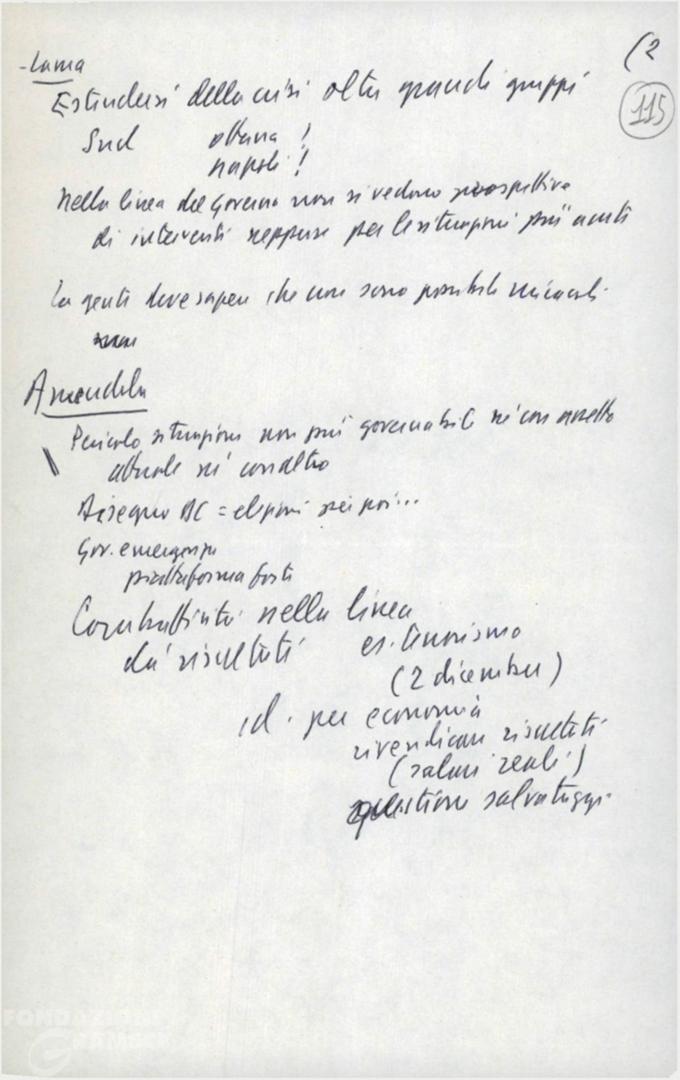 (2
115
- Lama
Estendersi della crisi oltre grandi gruppi
Sud ottana !
napoli !
Nella linea del Governo non si vedono prospettive
di interventi neppure per le situazioni più acuti
La gente deve sapere che non sono possibili miracoli
Amendola
Pericolo situazione non più governabile né con assetto
attuale né con altro
Disegno DC = elezioni poi...
Gov. emergenza
piattaforma forte
Combattività nella linea
dà risultati es. terrorismo
(2 dicembre)
id. per economia
rivendicare risultati
(salari reali)
questione salvataggi
FONDAZIONE
GRAMSCI